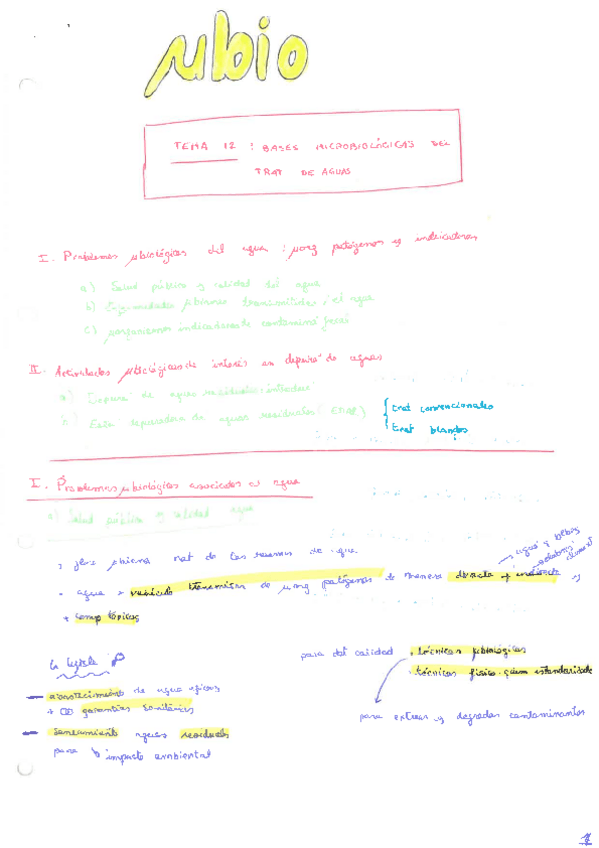 µbio
TEMA 12 : BASES MICROBIOLÓGICAS DEL
TRAT DE AGUAS
I. Problemas µbiológicos del agua : µorg patógenos y indicadores
a) Salud pública y calidad del agua
b) Enfermedades µbianas transmitidas el agua
c) µorganismos indicadores contaminó fecal
II. Actividades µbiológicas de interés en depura de aguas
a) Depura de aguas residuales: introduc
b) Esta depuradora de aguas residuales (EDAR)
trat convencionales
trat blandos
I. Problemas µbiológicos asociados al agua
a) Salud pública y calidad agua
µbiana nat de las reservas de agua
agua y bebida
- agua → vehículo transmisor de µorg patógenos de manera directa y indirecta
+ comp tóxicos
para det calidad
. técnicas µbiológicas
. técnicas físico-quím estandarizadas
- abastecimiento de agua
+ garantías sanitarias
para extraer y degradar contaminantes
- saneamiento aguas residuales
para ↓ impacto ambiental
1